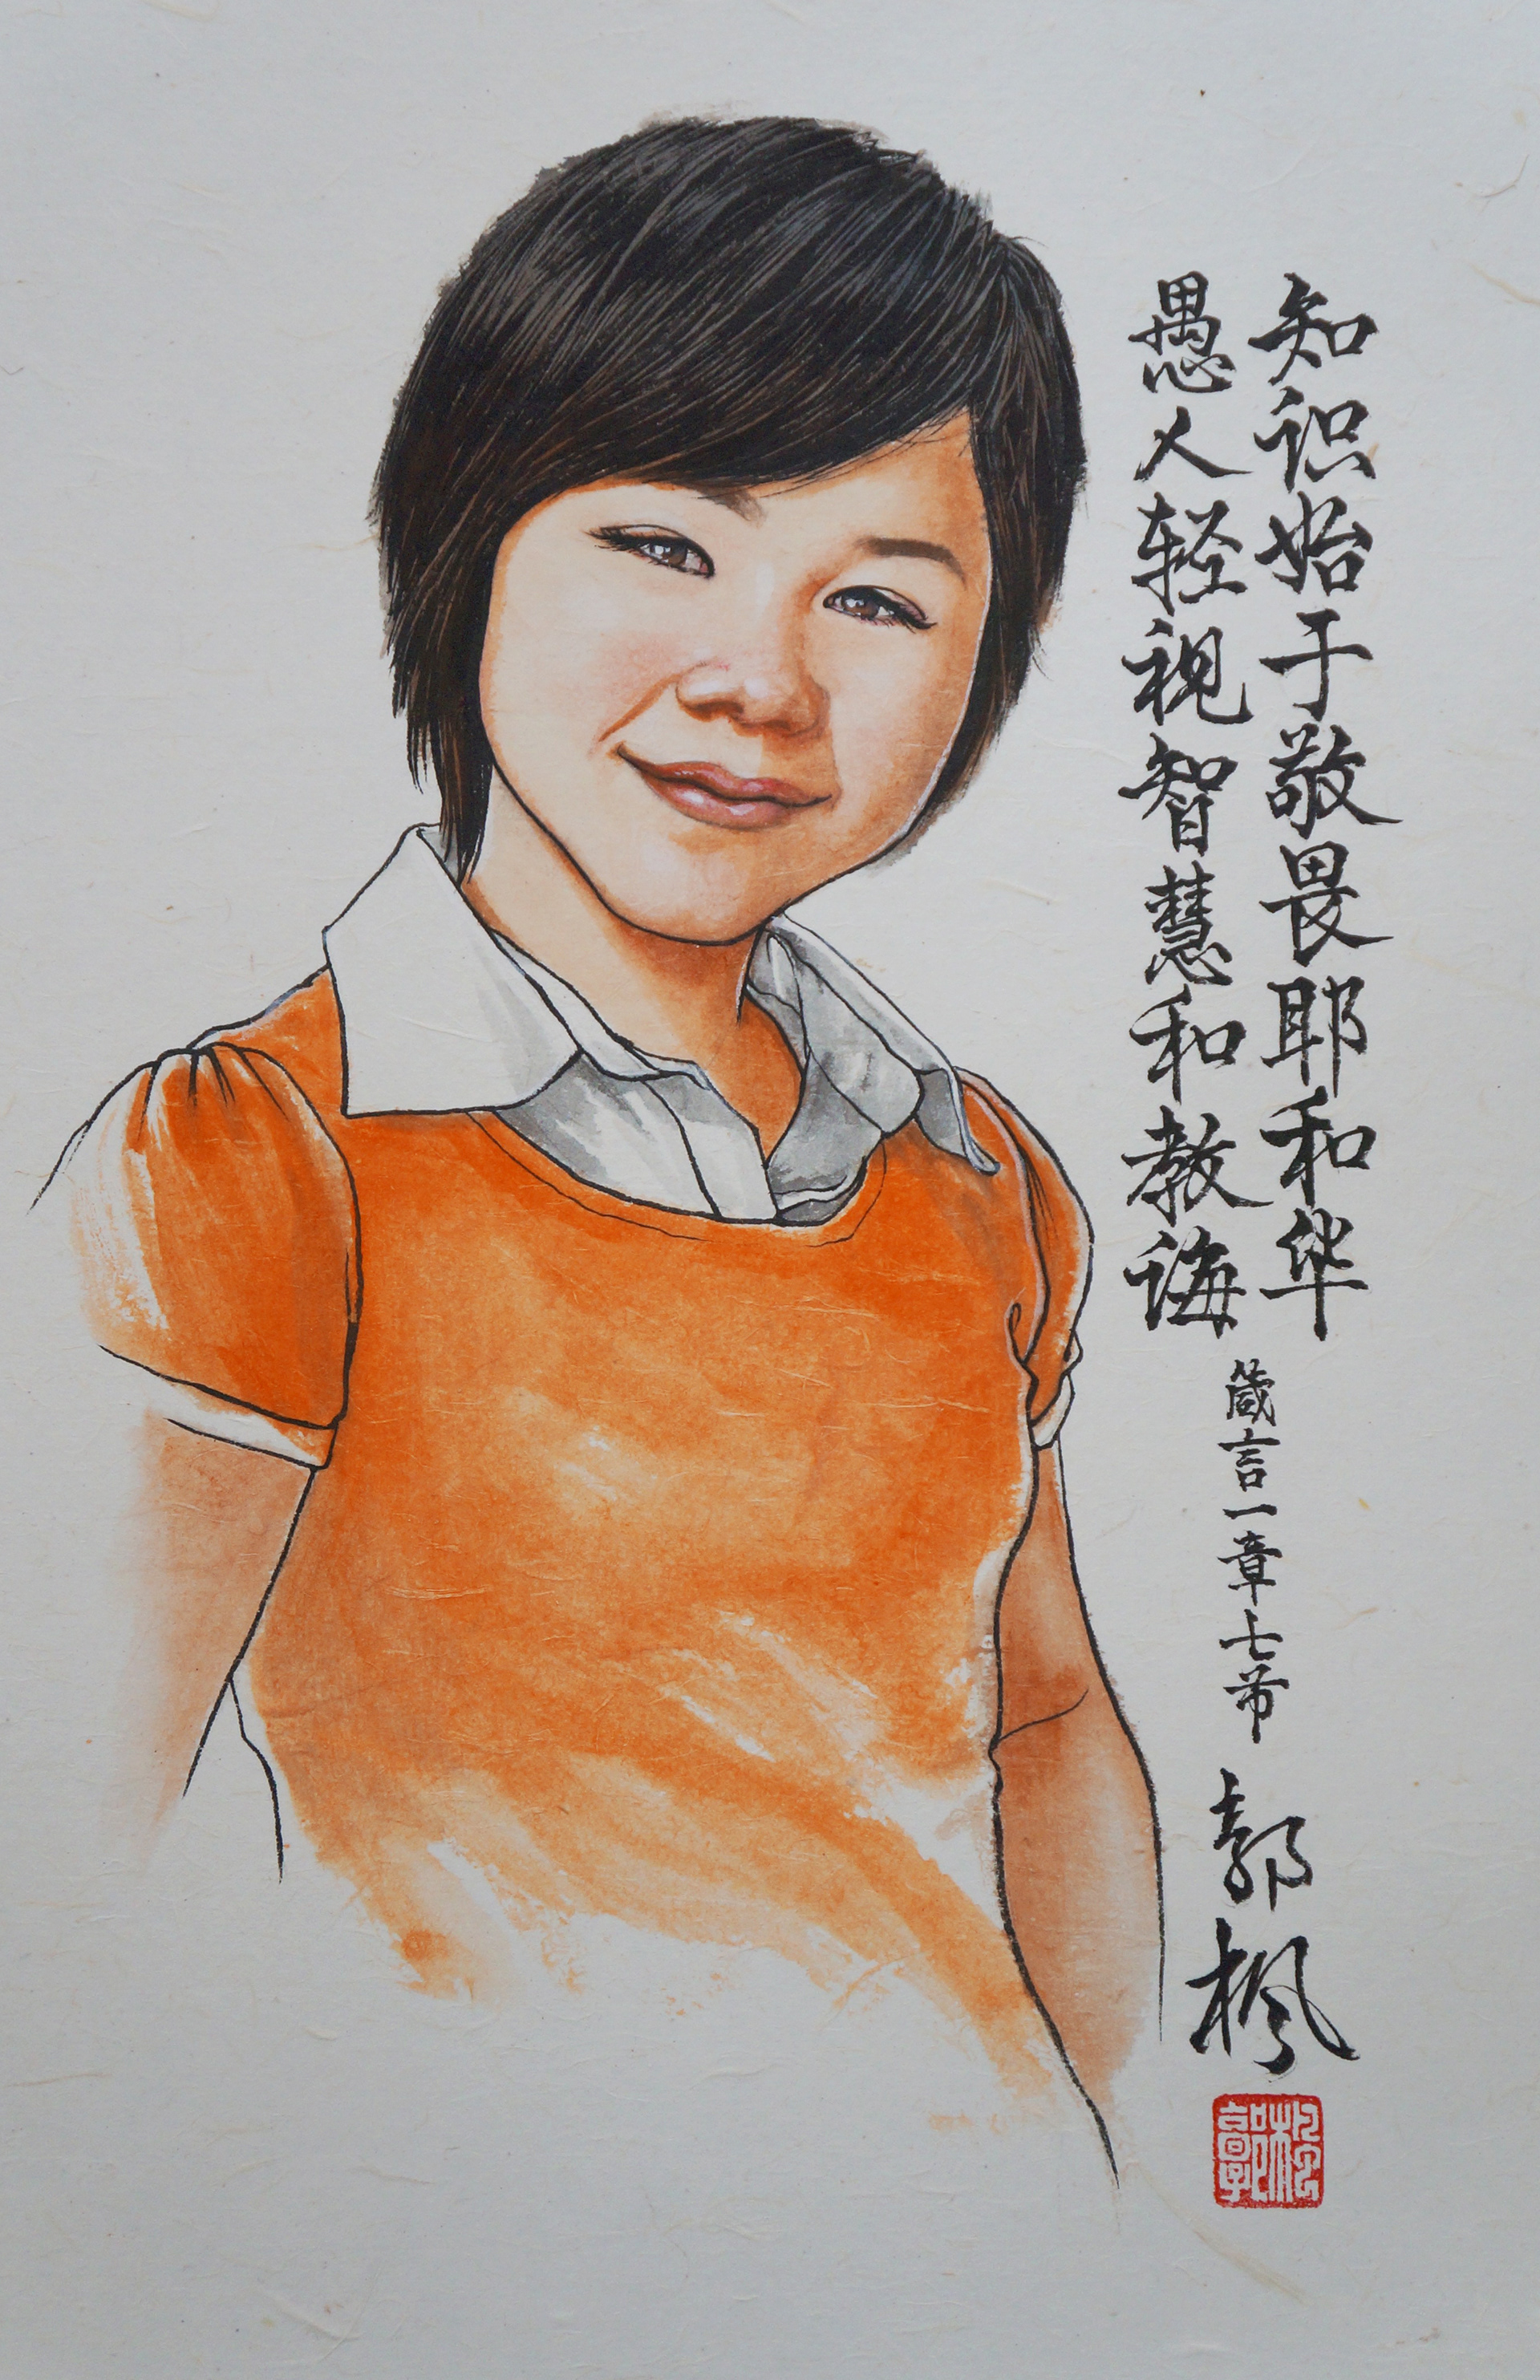 知识始于敬畏耶和华
愚人轻视智慧和教诲
箴言一章七节
郭枫